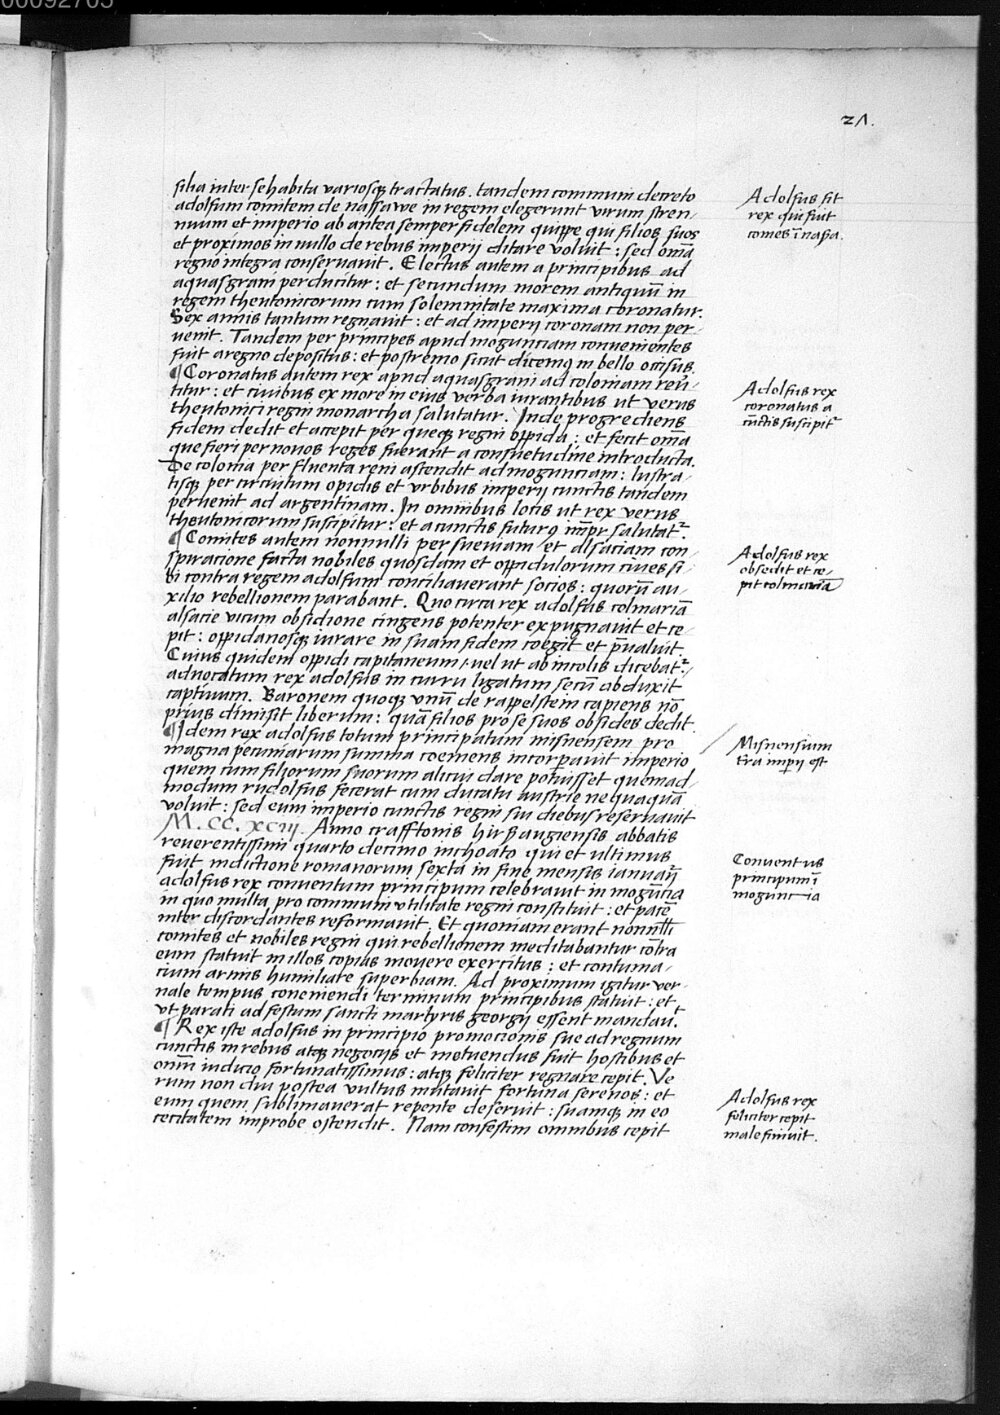 00092703
21.
silia inter se habita variosqꝫ tractatus. tandem communi decreto
adolfum comitem de nassawe in regem elegerunt virum stren-
nuum et imperio ab antea semper fidelem quippe qui filios suos
et proximos in nullo de rebus imperij ditare voluit : sed om̄ia
regno integra conservauit. Electus autem a principibus ad
aquasgrani perducitur : et secundum morem antiquū in
regem theutonicorum cum solemnitate maxima coronatur.
Sex annis tantum regnauit : et ad imperij coronam non per-
uenit. Tandem per principes apud mogunciam conuenientes
fuit a regno depositus : et postremo sicut dicemꝰ in bello occisus.
¶ Coronatus autem rex apud aquasgrani ad coloniam reuer-
titur : et ciuibus ex more in eius verba iurantibus ut verus
theutonici regni monarcha salutatur. Inde progrediens
fidem dedit et accepit per queqꝫ regni oppida : et fecit om̄ia
que fieri per nouos reges fuerant a consuetudine introducta.
De colonia per fluenta reni ascendit ad mogunciam : lustra-
tisqꝫ per circuitum opidis et vrbibus imperij cunctis tandem
peruenit ad argentinam. In omnibus locis ut rex verus
theutonicorum suscipitur : et a cunctis futurꝰ impr̄ salutat᷑.
¶ Comites autem nonnulli per sueuiam et alsaciam con-
spiracione facta nobiles quosdam et oppidulorum ciues si-
bi contra regem adolfum conciliauerant socios : quorū au-
xilio rebellionem parabant. Quocirca rex adolfus colmariā
alsacie vicum obsidione cingens potenter expugnauit et ce-
pit : oppidanosqꝫ iurare in suam fidem coegit et p̄ualuit.
Cuius quidem oppidi capitaneum / uel ut ab incolis dicebat᷑ /
aduocatum rex adolfus in curru ligatum secū abduxit
captiuum. Baronem quoqꝫ vnū de rappelstein capiens nō
prius dimisit liberum : quā filios pro se suos obsides dedit.
¶ Idem rex adolfus totum principatum misnensem pro
magna pecuniarum summa coemens incorꝑauit imperio
quem cum filiorum suorum alicui dare potuisset quemad-
modum rudolfus fecerat cum ducatu austrie nequaquā
voluit : sed eum imperio cunctis regni sui diebus reseruauit
M.CC.XCIII. Anno crafftonis hirsaugiensis abbatis
reuerentissimi quarto decimo inchoato qui et ultimus
fuit indictione romanorum sexta in fine mensis ianuarij
adolfus rex conuentum principum celebrauit in mogūcia
in quo multa pro communi vtilitate regni constituit : et pacē
inter discordantes reformauit. Et quoniam erant nonnlli
comites et nobiles regni qui rebellionem meditabantur cōtra
eum statuit in illos copias mouere exercitus : et contuma-
cium armis humiliare superbiam. Ad proximum igitur ver-
nale tempus conueniendi terminum principibus statuit : et
vt parati ad festum sancti martyris georgij essent mandau.
¶ Rex iste adolfus in principio promocionis sue ad regnum
cunctis in rebus atqꝫ negocijs et metuendus fuit hostibus et
omni inducio fortunatissimus : atqꝫ feliciter regnare cepit. Ve-
rum non diu postea vultus mutauit fortuna serenos : et
eum quem sublimauerat repente deseruit : suamqꝫ in eo
cecitatem improbe ostendit. Nam confestim omnibus cepit
Adolfus fit
rex qui fuit
comes ī naſsa.
Adolfus rex
coronatus a
cūctis suscipit᷑
Adolfus rex
obsedit et ce-
pit colmariā
Misnensium
t̄ra imp̄ij est
Conuentus
principum ī
moguncia
Adolfus rex
feliciter cepit
male finiuit.